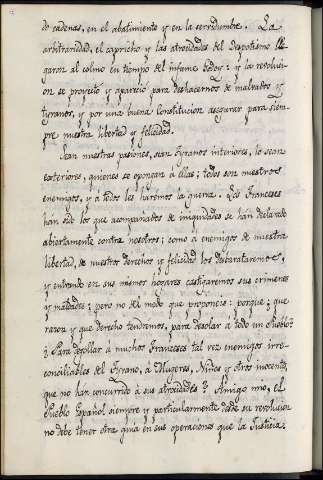 do cadenas, en el abatimiento y en la servidumbre. La
arbitrariedad, el capricho y las atrocidades del Despotismo lle-
garon al colmo en tiempo del Infame Godoy: y la revolucion
on se proyectó y apareció para deshacernos de malvados y
tyranos, y por una buena Constitucion asegurar para siem-
pre nuestra libertad y felicidad.
Sean nuestras pasiones, sean Tyranos interiores, lo sean
exteriores, quienes se oponean á ellas; todos son nuestros
enemigos, y á todos les haremos la guerra. Los Franceses
han sido los que acompañados de iniquidades se han declarado
abiertamente contra nosotros; como á enemigos de nuestra
libertad, de nuestros derechos y felicidad los desbarataremos,
y entrando en sus mismos hogares castigaremos sus crimenes
y maldades; pero no del modo que proponeis: porque ¿que
razon y que derecho tendremos, para desolar á todo un Pueblo?
¿Para degollar á muchos Franceses tal vez enemigos irre-
conciliables del Tirano, á Mugeres, Niños y otros inocentes,
que no han concurrido á sus atrocidades? Amigo mio, el
Pueblo Español siempre y particularmente desde su revolucion
no debe tener otra guia en sus operaciones que la Justicia.